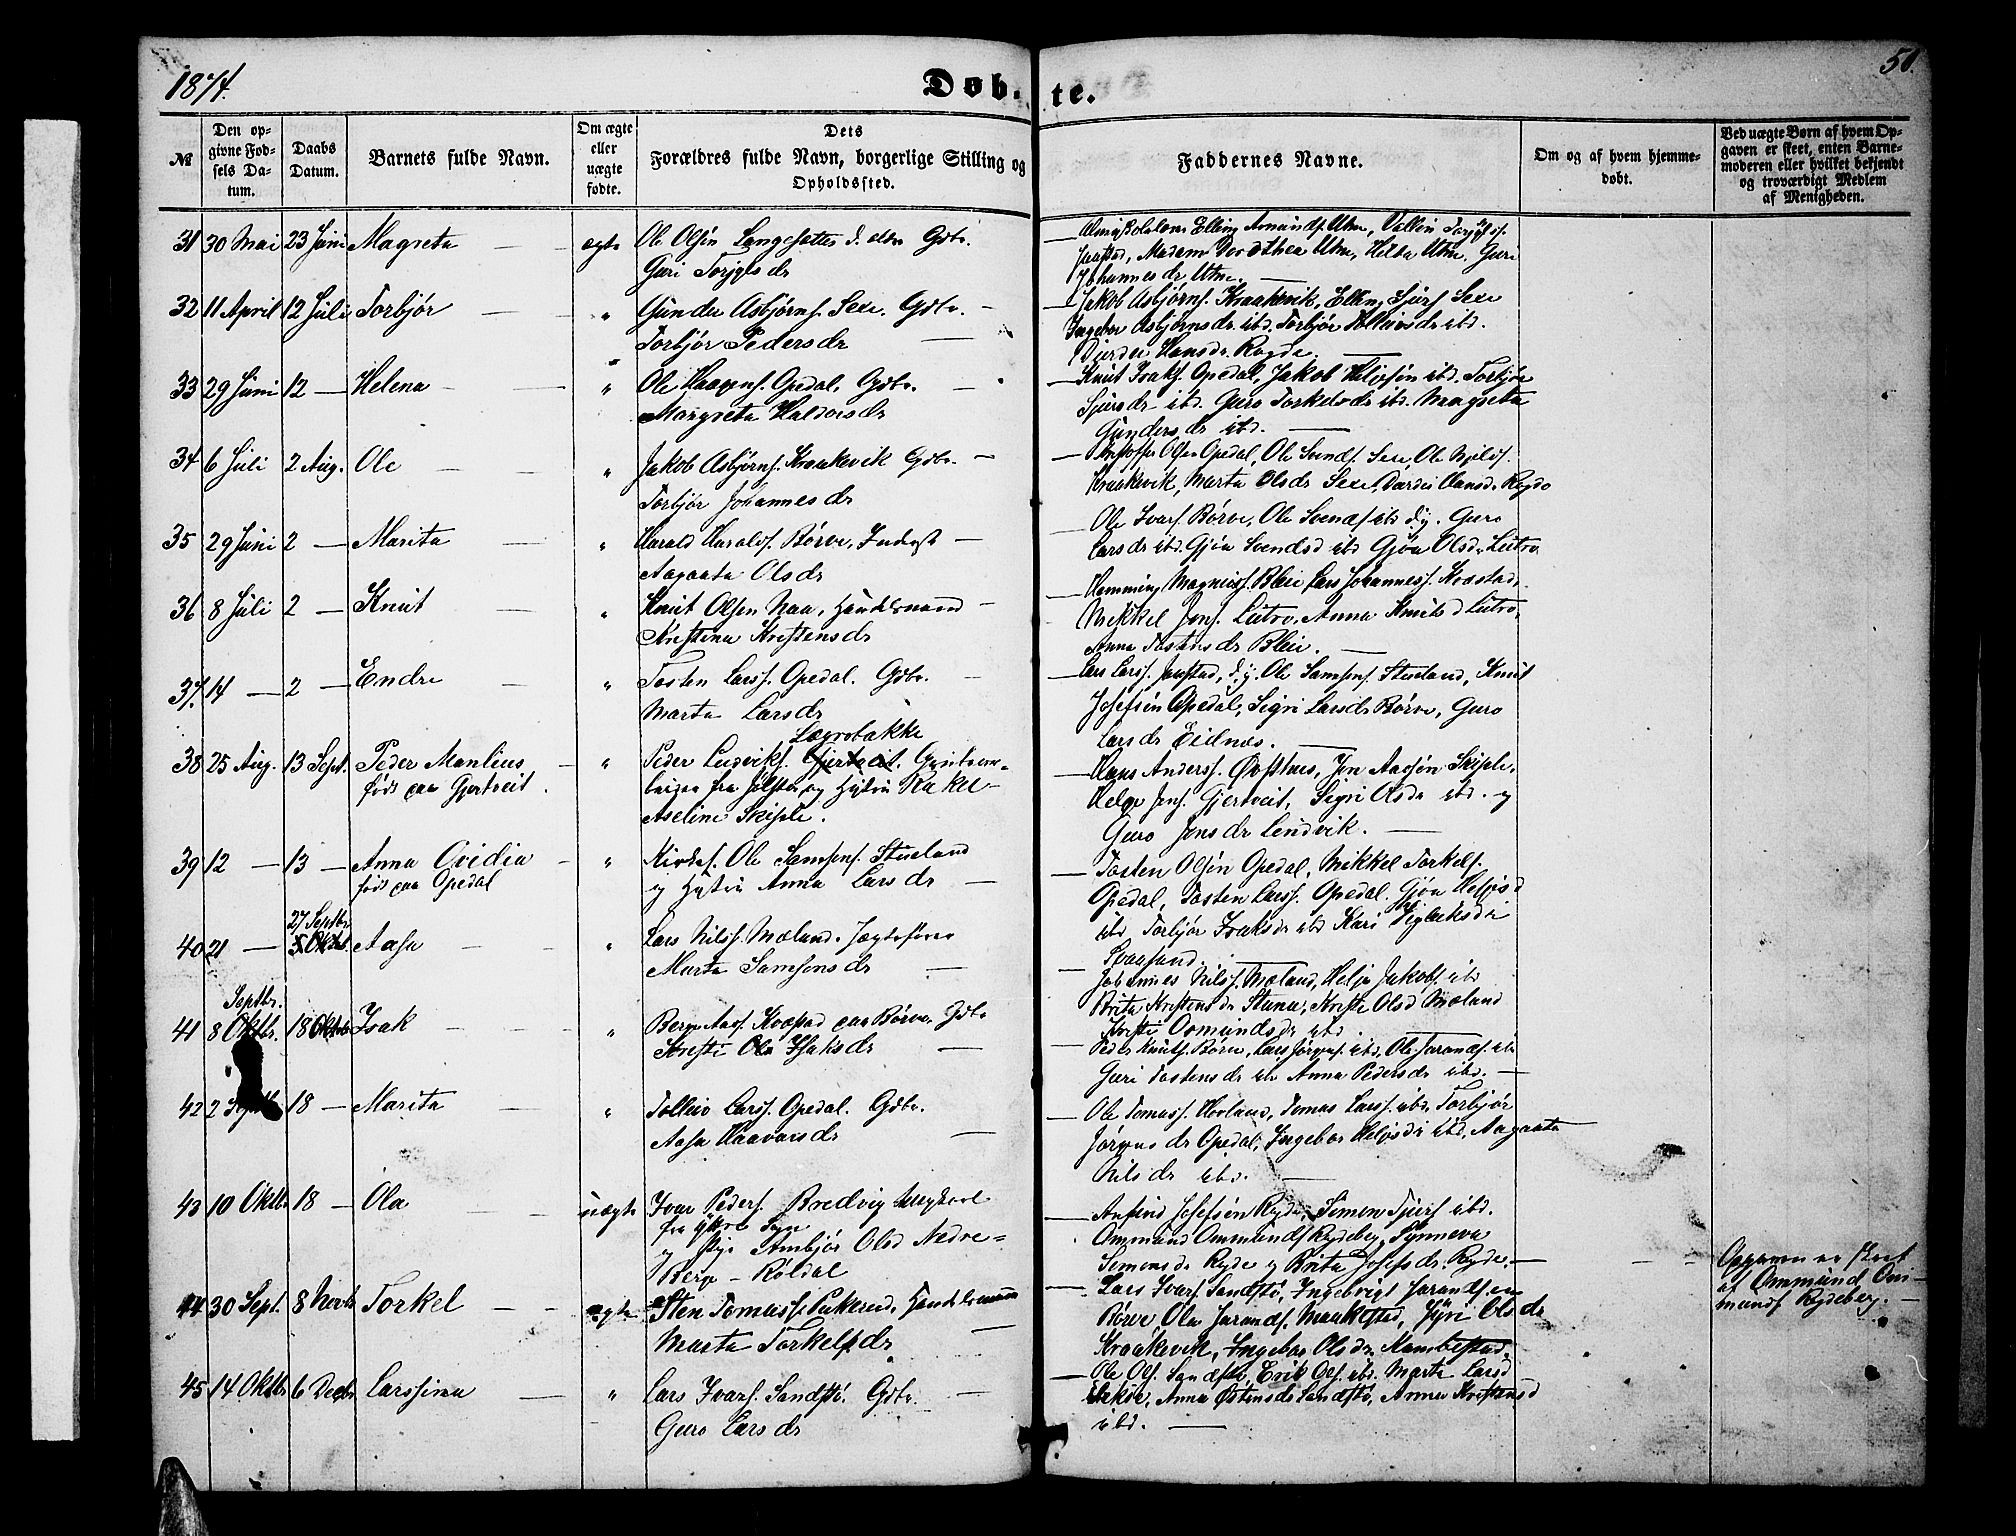 1874.
Døbte.
51.
№
Den opgivne Fødsels Datum.
Daabs Datum.
Barnets fulde Navn.
Om ægte eller uægte fødte.
Dets Forældres fulde Navn, borgerlige Stilling og Opholdssted.
Faddernes Navne.
Om og af hvem hjemmedøbt.
Ved uægte Børn af hvem Opgaven er skeet, enten Barnemoderen eller hvilket bekjendt og troværdigt Medlem af Menigheden.
31 30 Mai 23 Juni Magreta ægte Ole Olsen Langesæter d. eldr Gdbr.
Guri Torjylsdr
Elling Amundsf. Utne,
Madam Dorothea Utne, Helda Utne, Guri
Johannesdr Utne.
32 11 April 12 Juli Torbjør " Gunder Asbjørns. Sexe. Gdbr.
Torbjør Pedersdr
Jakob Asbjørns. Kraakevik, Elling Sjurs Sexe
Ingebor Asbjørnsdr ibd. Torbjør Tolleivsdr ibd.
Hansdr. Rogde.
33 29 Juni 12 — Helena " Ole Haagens. Opedal, Gdbr.
Margreta Haldorsdr
Knut Isaks. Opedal, Jakob Heljesen ibd. Torbjør
Sjursdr ibd. Guro Torkelsdr ibd. Magreta
Gundersdr ibd.
34 6 Juli 2 Aug. Ole " Jakob Asbjørns. Kraakevik Gdbr.
Torbjør Johannesdr
Olsen Opedal, Ole Svends. Sexe, Ole Njels.
Kraakevik, Marta Olsdr Sexe, Hansd. Rogde
35 29 Juni 2 — Marita " Harald Haralds. Børve, Inderst
Aagaata Olsdr
Ole Ivars. Børve, Ole Svends. ibd d.y. Guro
Larsdr ibd. Gjøa Svendsd ibd Gjøa Olsdr Lutro
36 8 Juli 2 — Knut " Knut Olsen Naa, Handelsmand
Kristina Kristensdr
Hemming Magnuss. Bleie Lars Johanness. Kvæstad.
Mikkel Jons. Lutro, Anna Knutsd Lutro,
Anna Tostensdr Bleie.
37. 14 — 2 — Endre " Tosten Larss. Opedal. Gdbr.
Marta Larsdr
Lars Larss. Jaastad, d.y. Ole Samsons. Stueland, Knut
Josefsen Opedal, Sigri Larsdr Børve, Guro
Larsdr Eidnes.
38 25 Aug. 13 Sept. Peder Manlius " Peder Ludviks. Gjertveit.
født paa Gjertveit.
fra Jølster og Hustru Rakel
Aseline Skiple.
Hans Anderss. Øvsthus, Jon Aasen Skiple,
Helge Jons. Gjertveit, Sigri Olsdr ibd. og
Guro Jonsdr Lindvik.
39 12 — 13 — Anna Ovidia " Kirkes. Ole Samsons. Stueland
født paa Opedal
og Hustru Anna Larsdr
Tosten Olsen Opedal, Mikkel Torkels.
Opedal, Tosten Larss. Opedal. Gjøa Heljesd
ibd Torbjør Isaksdr ibd Kari Viglaiksdr
Spaasand.
40 21 — 27 Septbr. Aasa " Lars Nilss. Mæland. Jægtefører
Marta Samsonsdr
Johannes Nilss. Mæland, Helje Jakobs. ibd
Brita Kristensdr Stana, Kristi Olsd Mæland
Kristi Osmundsdr ibd
Septbr.
41 8 Oktbr. 18 Oktbr Isak " Berge Aass. Kvæstad paa Børve. Gdbr
Kristi Isaksdr
Peder Knuts. Børve, Lars Jørgens. ibd, Ole Jarands. ibd
Guri Tostensdr ibd Anna Pedersdr ibd.
42 2 Septb. 18 — Marita " Tolleiv Larss. Opedal. Gdbr.
Aasa Haavarsdr
Ole Tomass. Hovland, Tomas Larss. ibd, Torbjør
Jørgensdr Opedal, Ingebor Heljesdr ibd, Aagaata
Nilsdr ibd.
43 10 Oktbr 18 — Ola uægte Ivar Peders. Bredvig Ungkarl
fra Ytre Sogn
og Pige Ambjør Olsd Nedre-
Berge - Røldal
Anfind Josefsen Ryde, Simon Sjurs ibd.
Ommund Ommunds. Rydeberg, Synneva
Simonsdr Ryde og Brita Josefsdr. Ryde.
Opgaven er skeet
af Ommund Om-
munds Rydeberg.
44 30 Sept. 8 Novbr Torkel ægte Sten Tomass. Handelsmann
Marta Torkelsdr
Lars Ivars. Sandstø, Ingebrigt Jarandsen
Børve, Ola Jarands. Maakestad, Syri Olsdr
Kraakevik, Ingebor Olsdr. Mannbestad.
45 14 Oktbr 6 Decbr Larssina " Lars Ivars. Sandstø. Gdbr.
Guro Larsdr
Ole Ols. Sandstø, Erik Ols. ibd. Marta Larsd
Anna Østensdr Sandstø, Anna Kristensd
ibd.